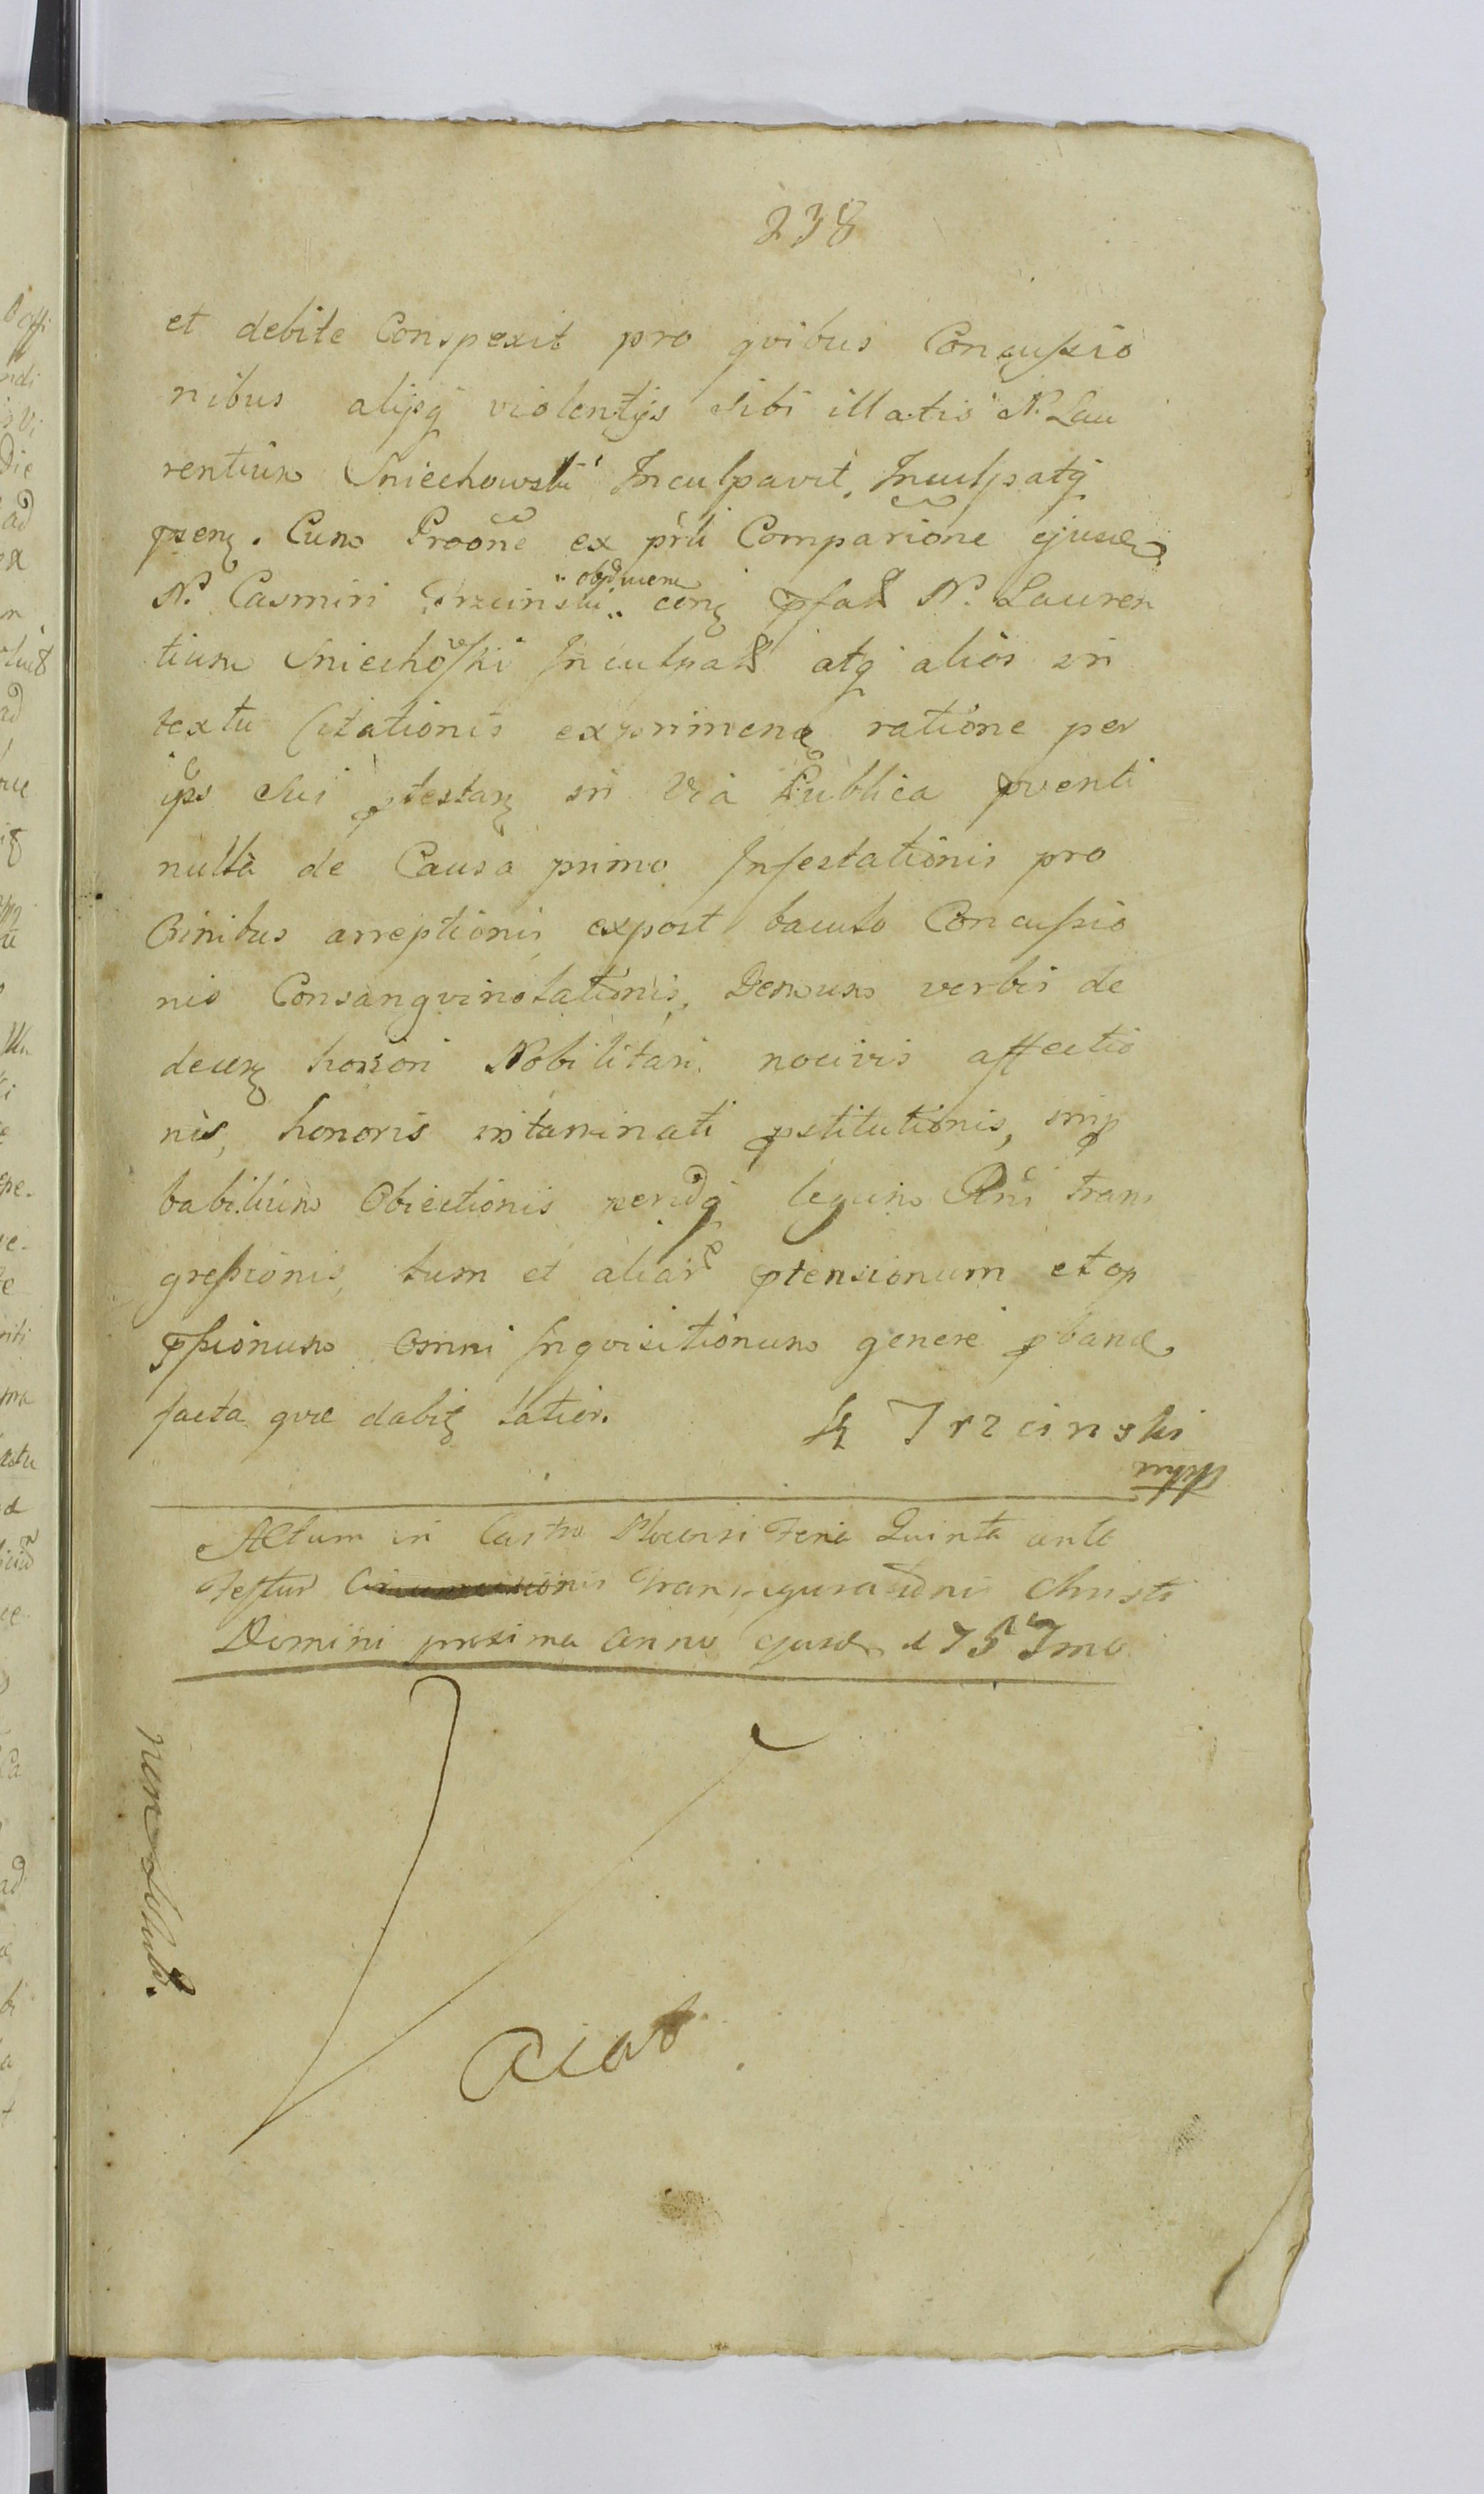 238
et debite Conspexit pro qvibus Concussio
nibus alijsq violentijs sibi illatis N. Lau
rentium Sniechowski Inculpavit, Inculpatq
psenz. Cum Proone ex prti Comparione ejusd
N. Casmiri Trzcinski conz pfat N. Lauren
tium Sniechowski Inculpat atq alios in
textu Citationis exprimend ratione per
ips Sui ptestanz in Via Publica pventi
nulla de Causa primo Infestationis pro
Crinibus arreptionis, expost baculo Concussio
nis Consangvinolationis, Demum verbis de
decenz honori Nobilitari nocivis affectio
nis, honoris intaminati pstitutionis, imp
babilium Obiectionis legum Rni trans
gressionis, tum et aliar ptensionum et op
pssionum omni Inqvisitionum genere pband
facta qvæ dabitz latior.
Trzcinski
mpp
Actum in Castro Plocensi Feria Quinta ante
Festum Transfigurationis Christi
Domini proxima Anno ejusd 1757mo
non solut.